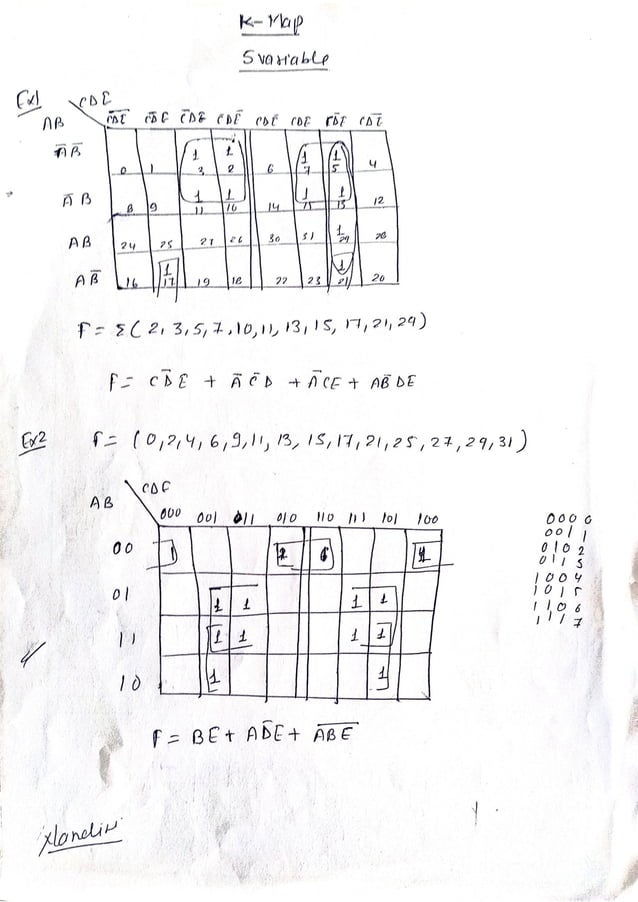 K-Map
5 variable
Ex1 CDE
AB C̅D̅E̅ C̅D̅E C̅DE C̅DE̅ CDE̅ CDE CD̅E CD̅E̅
A̅B̅ 0 1 1 3 1 2 6 1 7 1 5 4
A̅B 8 9 1 11 1 10 14 1 15 1 13 12
AB 24 25 27 26 30 31 1 29 28
AB̅ 16 1 17 19 18 22 23 1 21 20
F = Σ( 2, 3, 5, 7, 10, 11, 13, 15, 17, 21, 29)
F = CD̅E + A̅C̅D + A̅CE + AB̅D̅E
Ex2 F = (0,2,4,6,9,11,13,15,17,21,25,27,29,31)
CDE
AB 000 001 011 010 110 111 101 100
00 1 2 6 4
01 1 1 1 1
11 1 1 1 1
10 1 1
000 0
001 1
010 2
011 3
100 4
101 5
110 6
111 7
F = BE + AD̅E + A̅B̅E̅